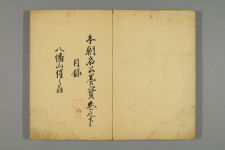 本朝名公墨寳巻之下
目録
八幡山